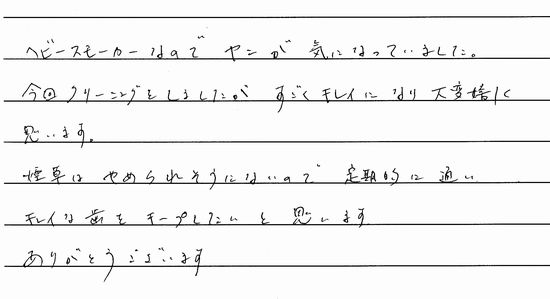 ヘビースモーカーなので ヤニが 気になっていました。
今回クリーニングをしましたが すごくキレイになり 大変嬉しく
思います。
煙草は やめられそうにないので 定期的に通い
キレイな歯をキープしたいと思います
ありがとうございます